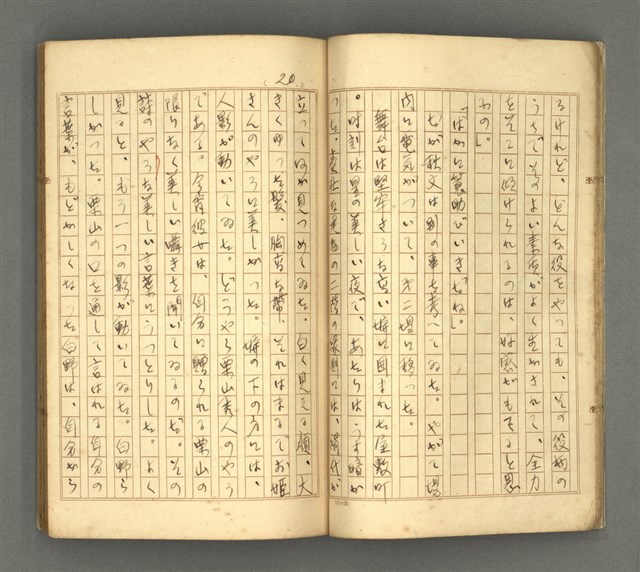 るけれど、どんな役をやっても、その役柄の
うちで、そのよい素質がよく生かされて、全力
をそこに傾けられるのは、好感がもてると思
ふの」。
「ばかに贔助でいきだね」。
だが秋文は別の事を考へてゐた。やがて場
内に電気がついて、オ二場に移った。
舞台は堅牢さうな高い塀に囲まれた屋敷町
。時刻は星の美しい夜で、あたりはうす暗か
つた。 の二階の には、満代が
立つて ほか見つめてゐた。白く見える顔、大
きくゆった髪、胸高な帯、それはまるでお姫
さんのやうに美しかった。塀の下の方には、
人影が動いてゐた。どうやら栗山秀人のやう
である。今宵彼女は、自分に贈られる栗山の
限りなく美しい囁きを聞いてゐるのだ。その
詩のやうな美しい言葉にうつとりした。よく
見ると、もう一つの影が動いてゐた。白野ら
しかつた。栗山の口を通して言はれる自分の
言葉が、もどかしくなつた白野は、自分から
(20)